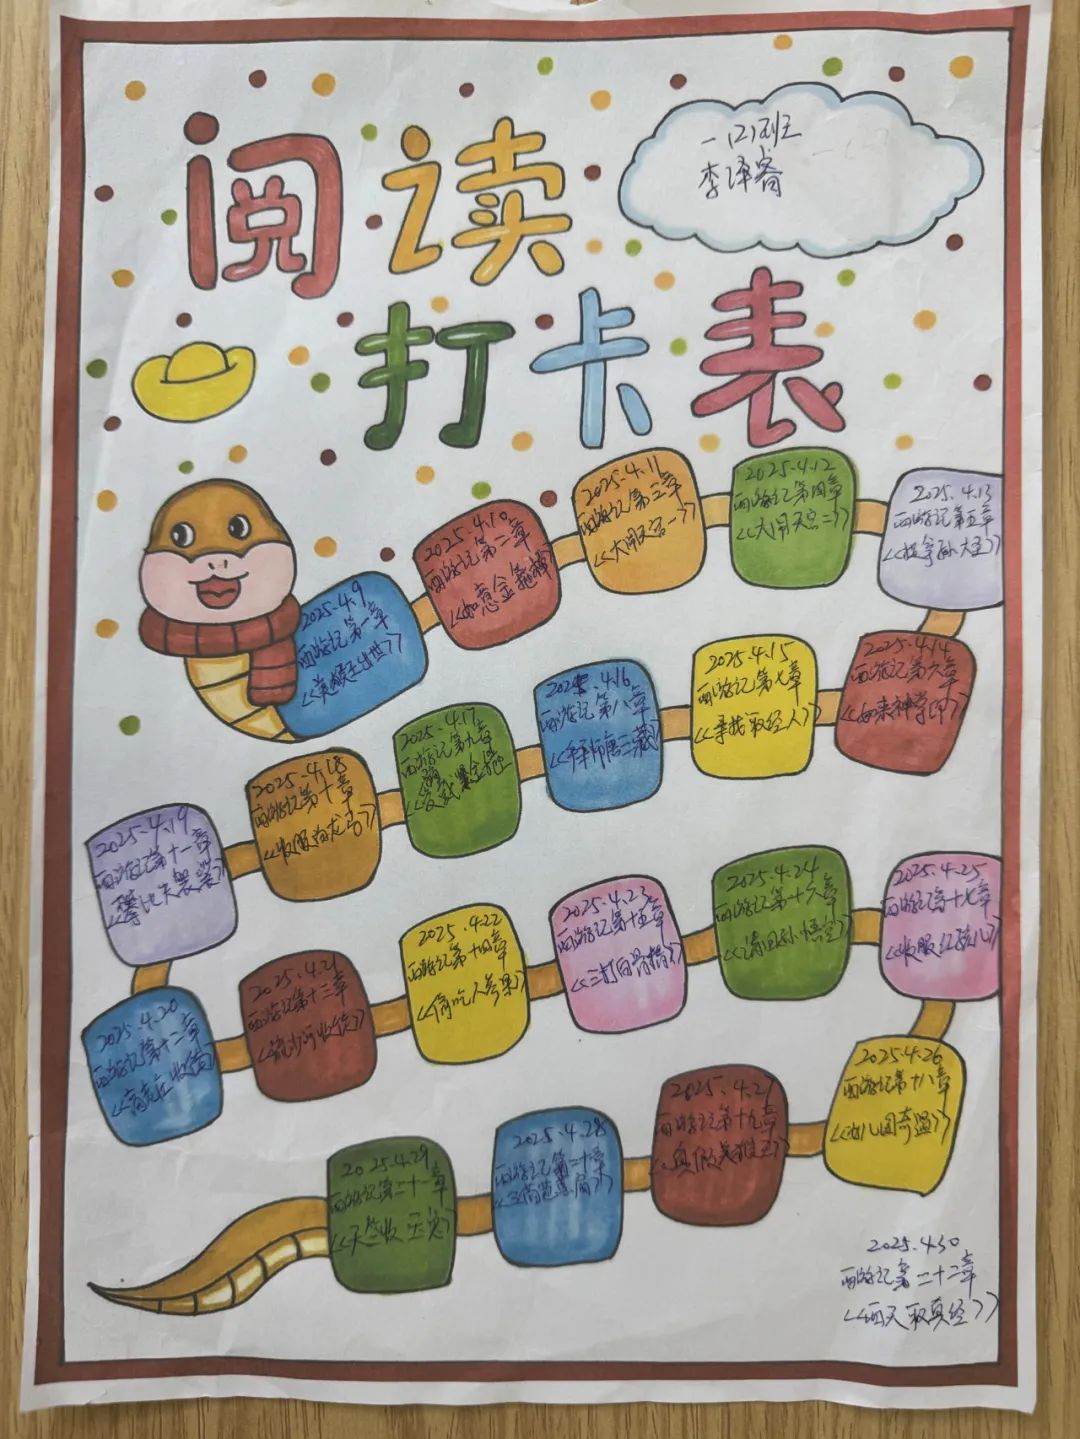 阅读
打卡表
一(2)班
李泽睿
2025.4.9
西游记第一章
《美猴王出世》
2025.4.10
西游记第二章
《如意金箍棒》
2025.4.11
西游记第三章
《大闹天宫一》
2025.4.12
西游记第四章
《大闹天宫二》
2025.4.13
西游记第五章
《捉拿孙大圣》
2025.4.14
西游记第六章
《如来神掌印》
2025.4.15
西游记第七章
《寻找取经人》
2025.4.16
西游记第八章
《拜师唐三藏》
2025.4.17
西游记第九章
2025.4.18
西游记第十章
《收服白龙马》
2025.4.19
西游记第十一章
比丢袈裟》
2025.4.20
西游记第十二章
《高老庄收
2025.4.21
西游记第十三章
《流沙河收
2025.4.22
西游记第十四章
《偷吃人参果》
2025.4.23
西游记第十五章
《三打白骨精》
2025.4.24
西游记第十六章
《请回孙悟空》
2025.4.25
西游记第十七章
《收服红孩儿》
2025.4.26
西游记第十八章
《女儿国奇遇》
2025.4.27
西游记第十九章
《真假美猴王》
2025.4.28
西游记第二十章
《三借芭蕉扇》
2025.4.29
西游记第二十一章
《天竺收玉兔》
2025.4.30
西游记第二十二章
《西天取真经》